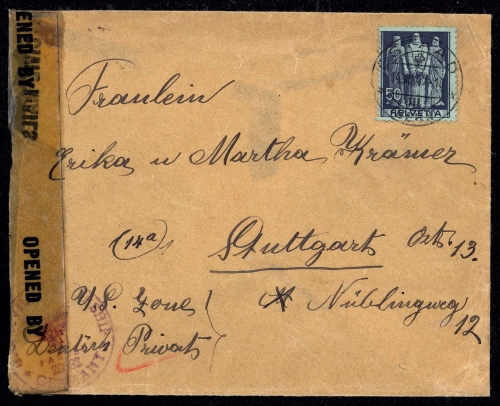 50
HELVETIA
Fraulein
Erika u Martha Krämer
(14a) Stuttgart Ost. 13.
U.S. Zone Nüblingweg
12
Privat
OPENED BY
OPENED BY